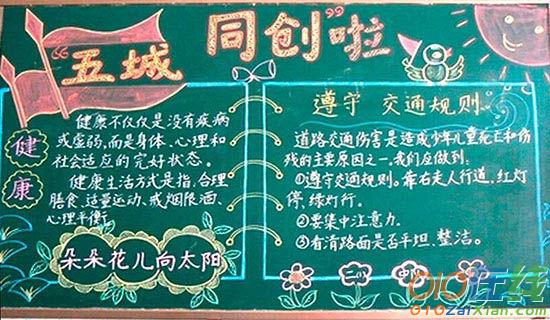 “五城同创”啦
健康
健康不仅仅是没有疾病
或虚弱,而是身体、心理和
社会适应的完好状态。
健康生活方式是指,合理
膳食、适量运动、戒烟限酒、
心理平衡。
朵朵花儿向太阳
遵守 交通规则。
道路交通伤害是造成少年儿童死亡和伤
残的主要原因之一。我们应做到:
①遵守交通规则。靠右走人行道,红灯
停,绿灯行。
②要集中注意力。
③看清路面是否平坦、整洁。
二 中
010在线
010zaixian.com